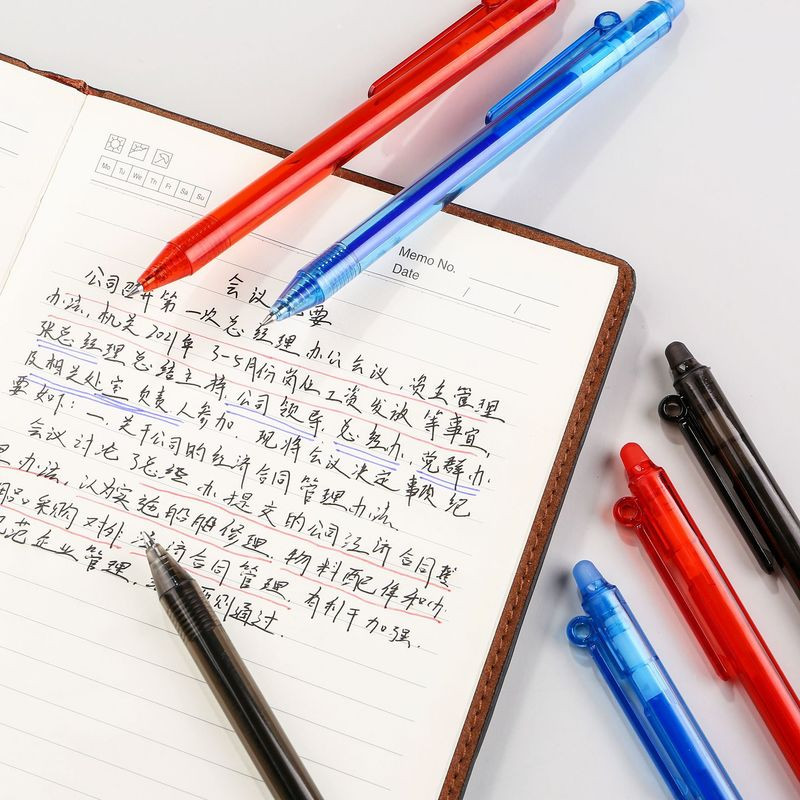 Mo Tu We Th Fr Sa Su
Memo No.
Date / /
会议 要
公司召开第一次总经理办公会议，资主管理
办法，机关2021年3-5月份岗位工资发放等事宜，
张总经理总结主持，公司领导，总经办，党群办
及相关处室负责人参加。现将会议决定事项纪
要如下：一、关于公司的经济合同管理办法
会议讨论了总经办提交的公司经济合同
办法，认为实施船舶修理，物料配件和办
用品采购对外 济合同管理，有利于加强
范企业管理， 原则通过。